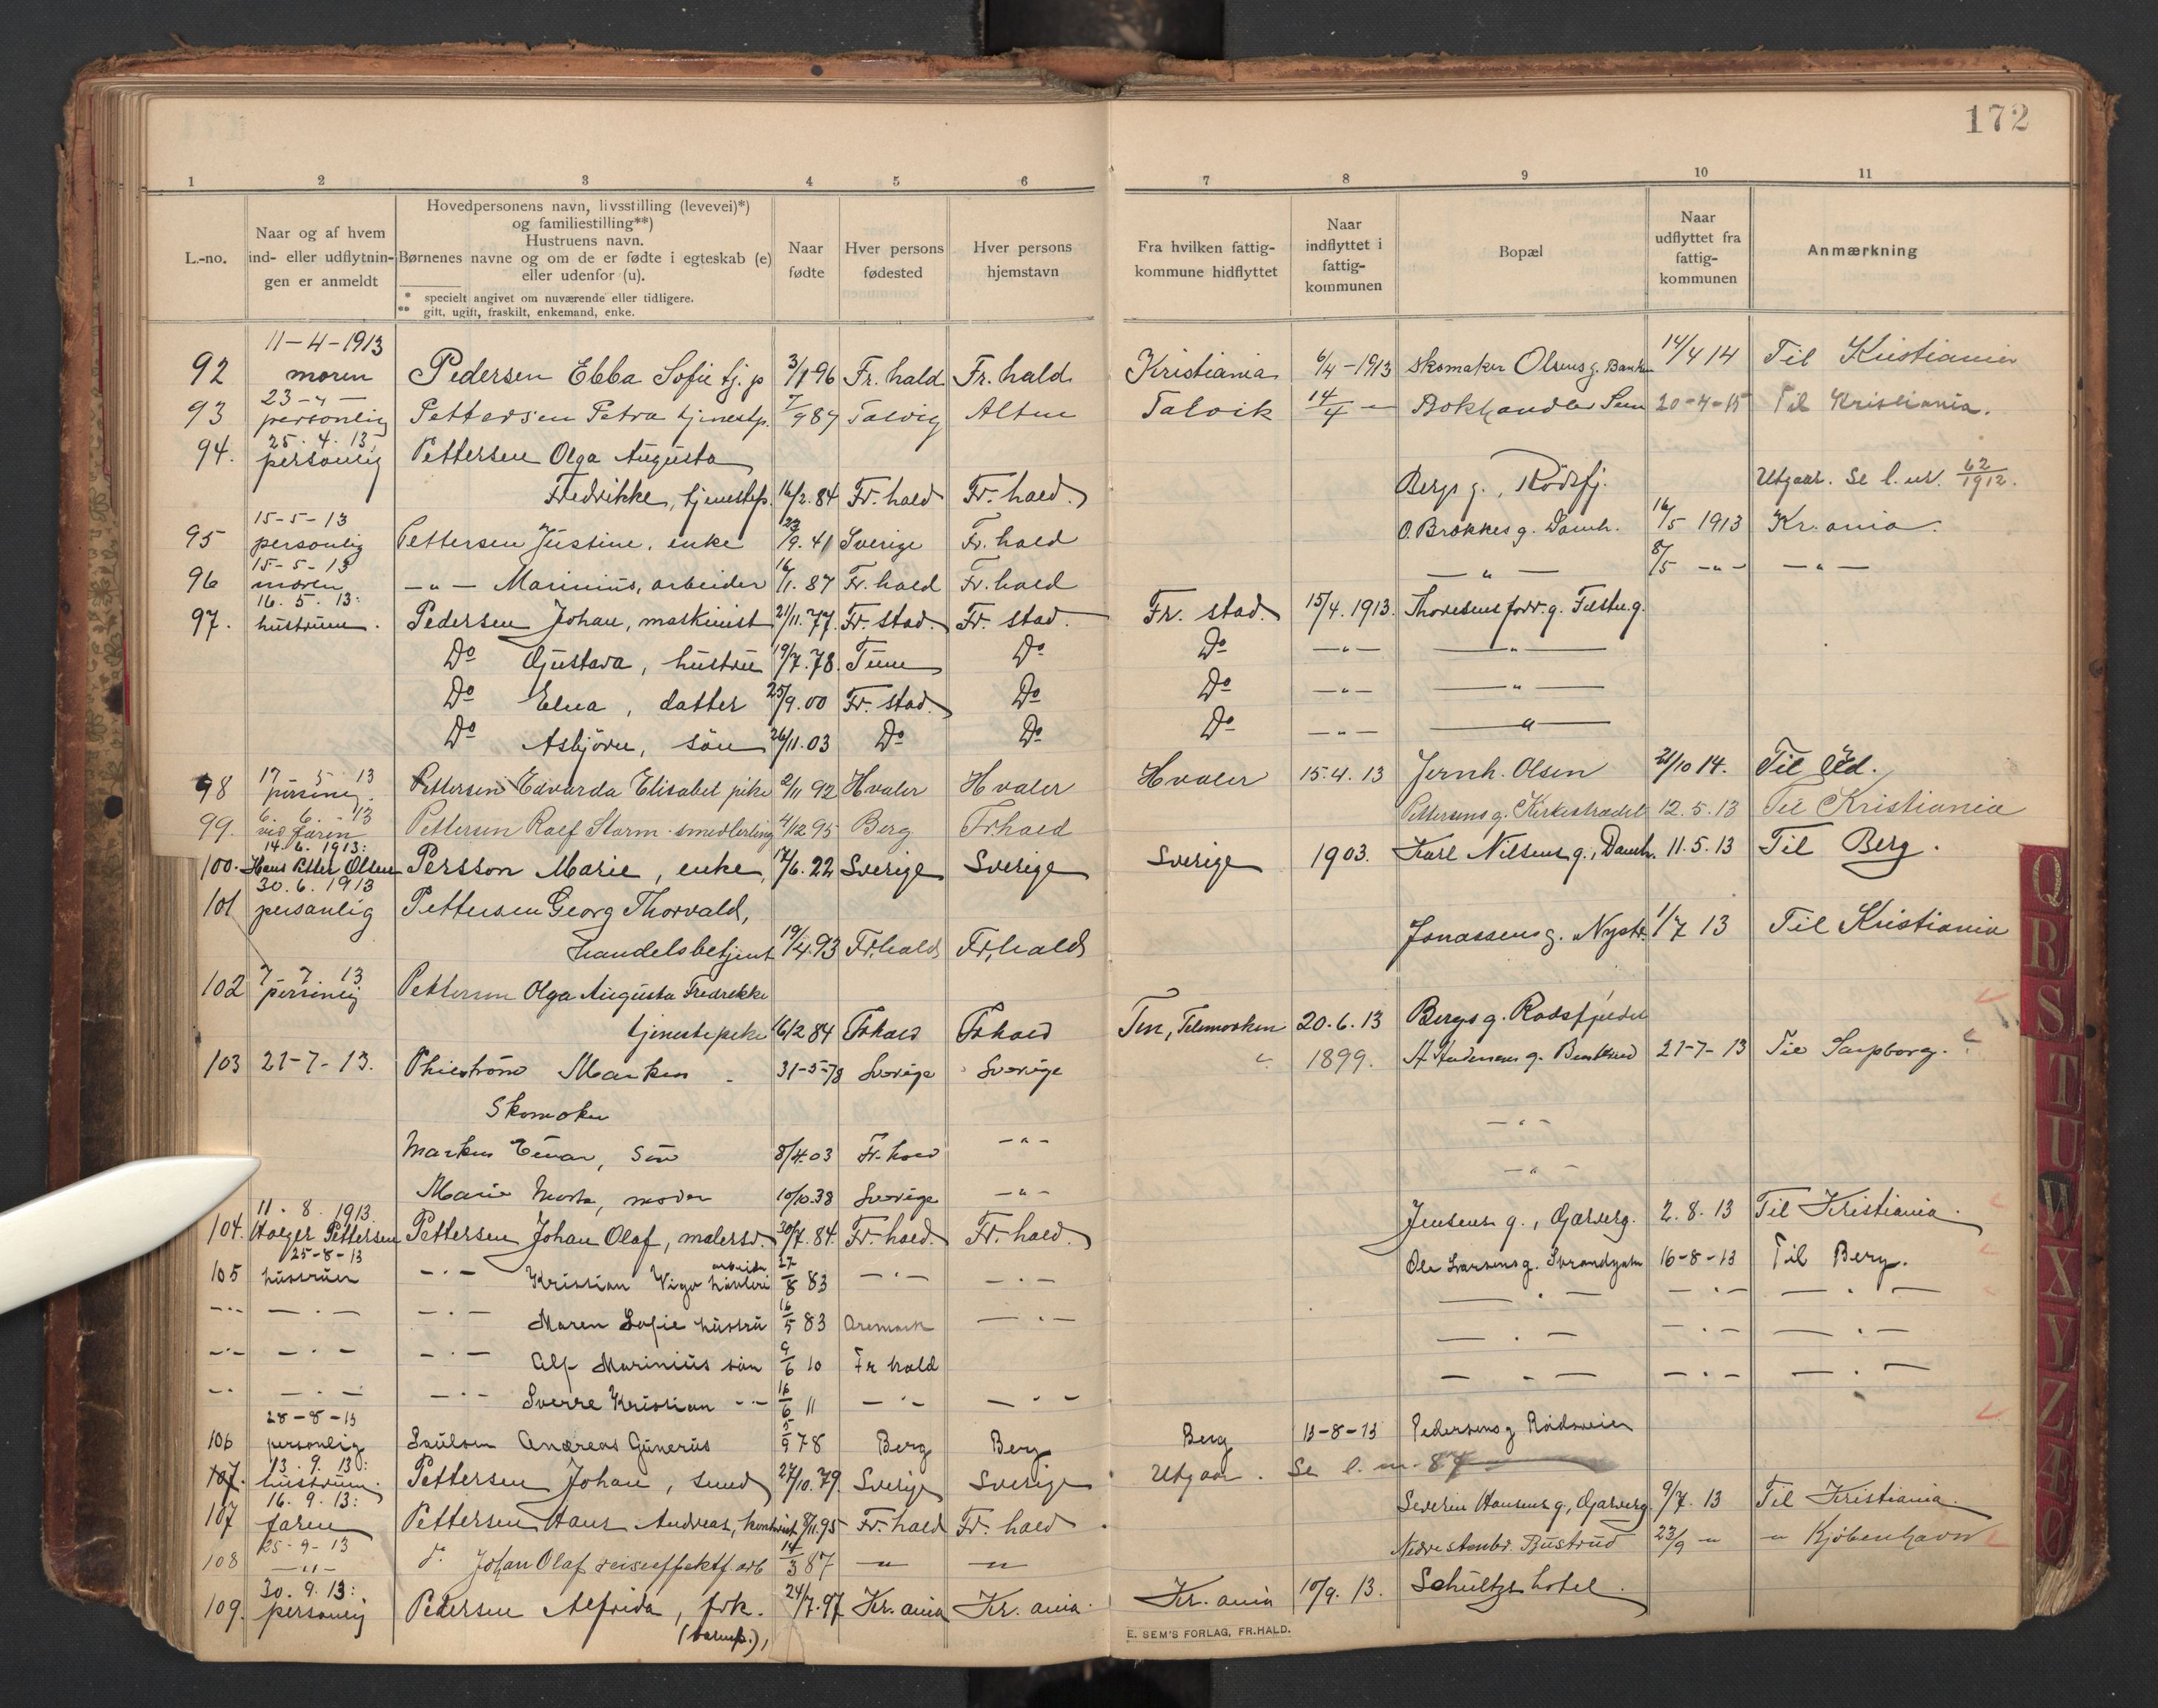 172
1 2 3 4 5 6 7 8 9 10 11
L.-no.
Naar og af hvem ind- eller udflytnin-gen er anmeldt
Hovedpersonens navn, livsstilling (levevei)*)
og familiestilling**)
Hustruens navn.
Børnenes navne og om de er fødte i egteskab (e)
eller udenfor (u).
* specielt angivet om nuværende eller tidligere.
** gift, ugift, fraskilt, enkemand, enke.
Naar fødte
Hver persons fødested
Hver persons hjemstavn
Fra hvilken fattig-kommune hidflyttet
Naar indflyttet i fattig-kommunen
Bopæl
Naar udflyttet fra fattig-kommunen
Anmærkning
11-4-1913
92 moren Pedersen Ebba Sofie tj. p 3/1 96 Fr.hald Fr.hald Kristiania 6/4-1913 Skomaker Olsens g. 14/4 14 Til Kristiania
23-"-
93 personlig Pettersen Petra tjenestp. 7/9 87 Talvig Alten Talvik 14/4 - Bokhandler Sem 20-4-15 Til Kristiania.
25.4.13
94. personlig Pettersen Olga Augusta
Fredrikke, tjenestep. 16/2.84 Fr.hald Fr.hald. Bergs g., Rödsfj. Utgaar. Se l.nr. 62/1912.
15-5-13
95 personlig Pettersen Justine. enke 23/9.41 Sverige Fr.hald O. Brokkes g. Damh. 16/5 1913 Kr.ania.
15-5-13
96 moren -"- Marinius, arbeider 16/1.87 Fr.hald Fr.hald -"- 8/5 -"- -"-
16.5.13:
97. hustruen. Pedersen Johan, maskinist 21/11.77. Fr.stad. Fr.stad. Fr.stad. 15/4.1913. Thoresens forr. g. Festn g.
Do Gustava, hustru 19/7.78. Tune Do Do -"- -"-
Do Elna, datter 25/9.00 Fr.stad. Do Do -"- -"-
Do Asbjörn, sön 26/11.03 Do Do Do -"- -"-
17-5-13
98 personlig. Pettersen Edvarda Elisabet pike 2/11 92 Hvaler Hvaler Hvaler 15.4.13 Jernh. Olsen 21/10 14. Til Id.
6.6.-13
99. ved faren Pettersen Ralf Storm. smedlerling 4/12 95 Berg Frhald Pettersens g. Kirkestrædet 12.5.13 Til Kristiania
14.6.1913:
100. Hans Petter Olsen Persson Marie, enke, 17/6.22 Sverige Sverige Sverige 1903. Karl Nilsens g., Damh. 11.5.13 Til Berg.
30.6.1913
101 personlig Pettersen Georg Thorvald,
handelsbetjent 19/4.93 Fr.hald Fr.hald Jonassens g. Nystr. 1/7 13 Til Kristiania
7-7.13
102 personlig Pettersen Olga Augusta Fredrikke
tjenestepike 16/2 84 Frhald Frhald Tin, Telemarken 20.6.13 Bergs g. Rödsfjeldet
103 21-7-13. Markus 31-5-78 Sverige Sverige " 1899. A Andersens g. 21-7-13 Til Sarpborg.
Skomaker -"-
Markus Einar, Sön 8/4.03 Fr.hald -"- -"-
Marie, moder 10/10.38 Sverige -"-
11.8.1913
104. Holger Pettersen Pettersen Johan Olaf, malersv. 30/7.84. Fr.hald. Fr.hald. Jensens g., Garverg. 2.8.13 Til Kristiania.
25-8-13
105 hustruen -"- Kristian Vigo arbeider 27/8 83 -"- -"- Ole Larsens g. Strandgaten 16-8-13 Til Berg.
-"- -"- -"- Maren Sofie hustru 16/5 83 Aremark -"- -"- -"- -"-
-"- -"- -"- Alf Marinius sön 9/6 10 Fr hald -"- -"- -"-
-"- -"- -"- Sverre Kristian -"- 16/6 11 -"- -"- -"- -"- -"-
28-8-13
106 personlig Andreas Gunerius 5/9 78 Berg Berg Berg 13-8-13 Pedersens g Rödsveien
13.9.13:
107. hustruen. Pettersen Johan, smed 27/10.79. Sverige Sverige Utgaar. Se l.nr. 87
16.9.13:
107 faren Pettersen Hans Andreas, kontorist 8/11.95 Fr.hald Fr.hald Severin Hansens g, Garverg. 9/7.13 Til Kristiania.
25-9-13
108 -"- do Johan Olaf reiseeffektf. arb 14/3 87 " " Nedre stenbr. Bustrud 23/9 " " Kjöbenhavn
30.9.13:
109. personlig Pedersen Alfrida, frk. 24/7.97 Kr.ania Kr.ania. Kr.ania 10/9.13. Schultzs hotel.
(barnep.),
E. SEM'S FORLAG, FR.HALD.
Q R S T U W X Y Z Æ Ø